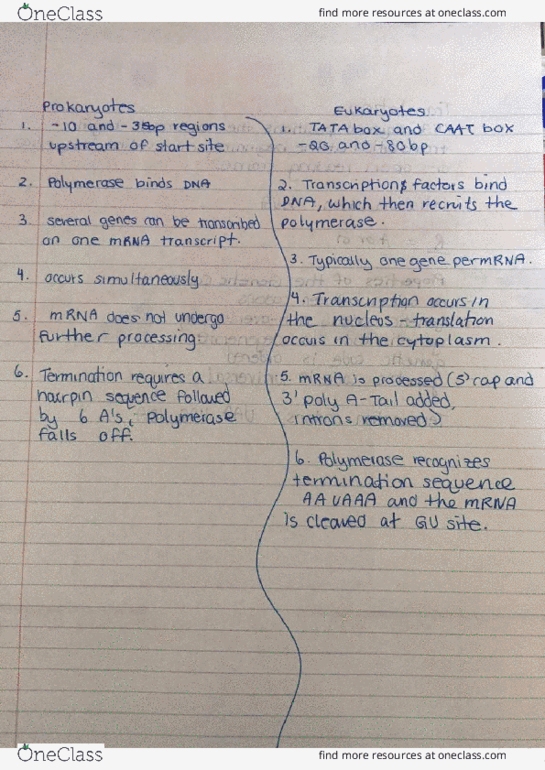 OneClass
find more resources at oneclass.com
Prokaryotes
1. -10 and -35bp regions
upstream of start site
2. Polymerase binds DNA
3. several genes can be transcribed
on one mRNA transcript.
4. occurs simultaneously
5. mRNA does not undergo
further processing
6. Termination requires a
hairpin sequence followed
by 6 A's, polymerase
falls off.
Eukaryotes
1. TATA box and CAAT box
and -80bp
2. Transcription factors bind
DNA, which then recruits the
polymerase.
3. Typically one gene per mRNA.
4. Transcription occurs in
the nucleus - translation
occurs in the cytoplasm.
5. mRNA is processed (5' cap and
3' poly A-Tail added,
introns removed)
6. Polymerase recognizes
termination sequence
AAUAAA and the mRNA
is cleaved at GU site.
OneClass
find more resources at oneclass.com